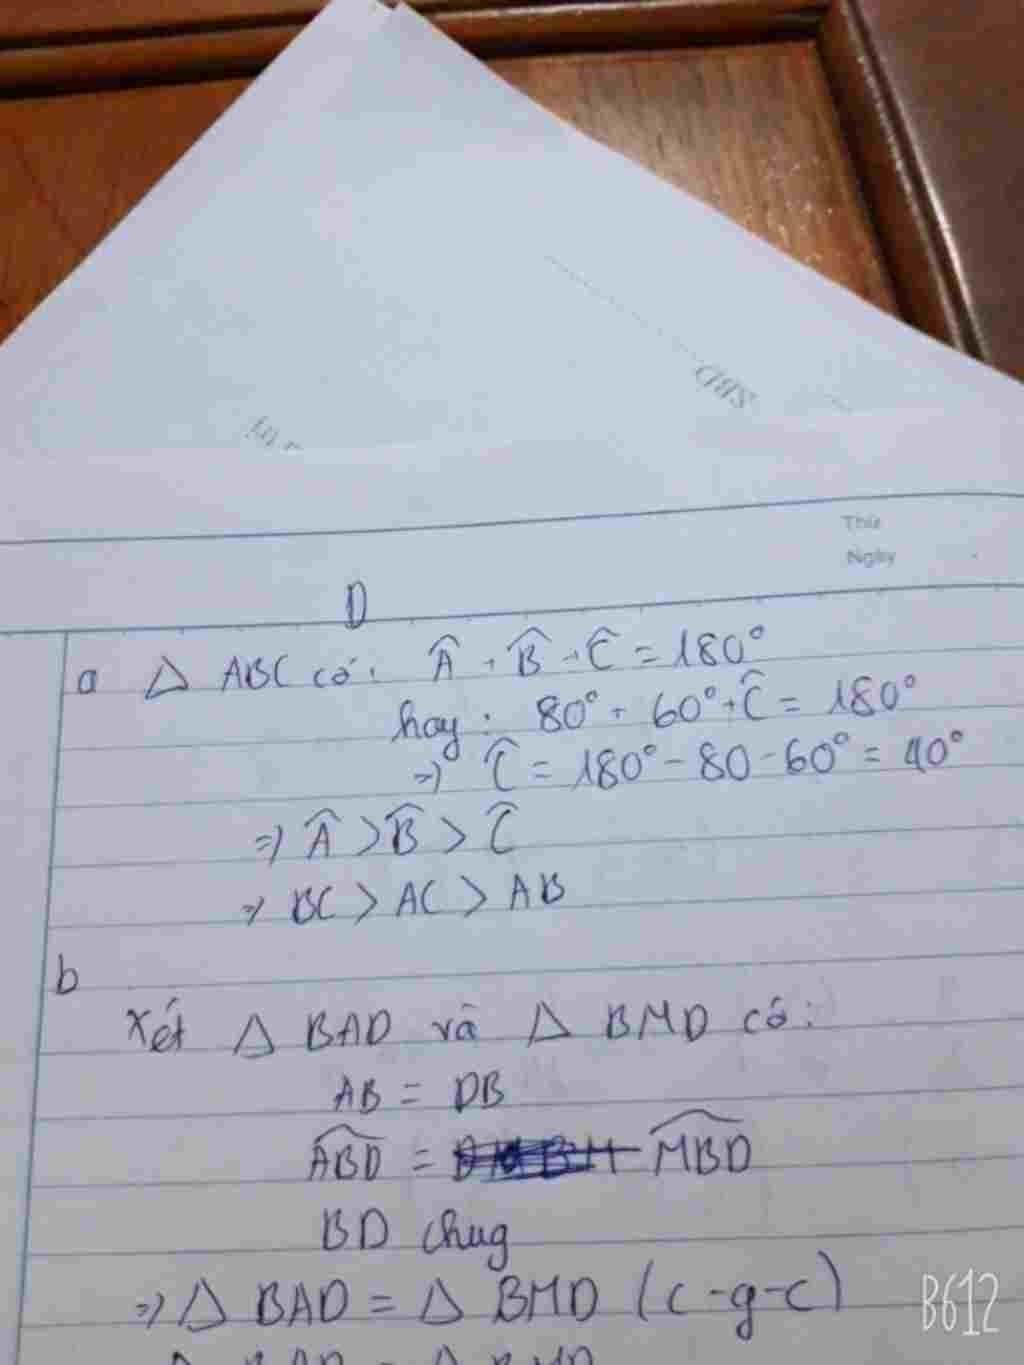 SBD
Thứ
Ngày
D
a △ ABC có: Â + B̂ + Ĉ = 180°
hay: 80° + 60° + Ĉ = 180°
=> Ĉ = 180° - 80 - 60° = 40°
=> Â > B̂ > Ĉ
=> BC > AC > AB
b
Xét △ BAD và △ BMD có:
AB = DB
ABD = MBD
BD chug
=> △ BAD = △ BMD (c-g-c)
B612